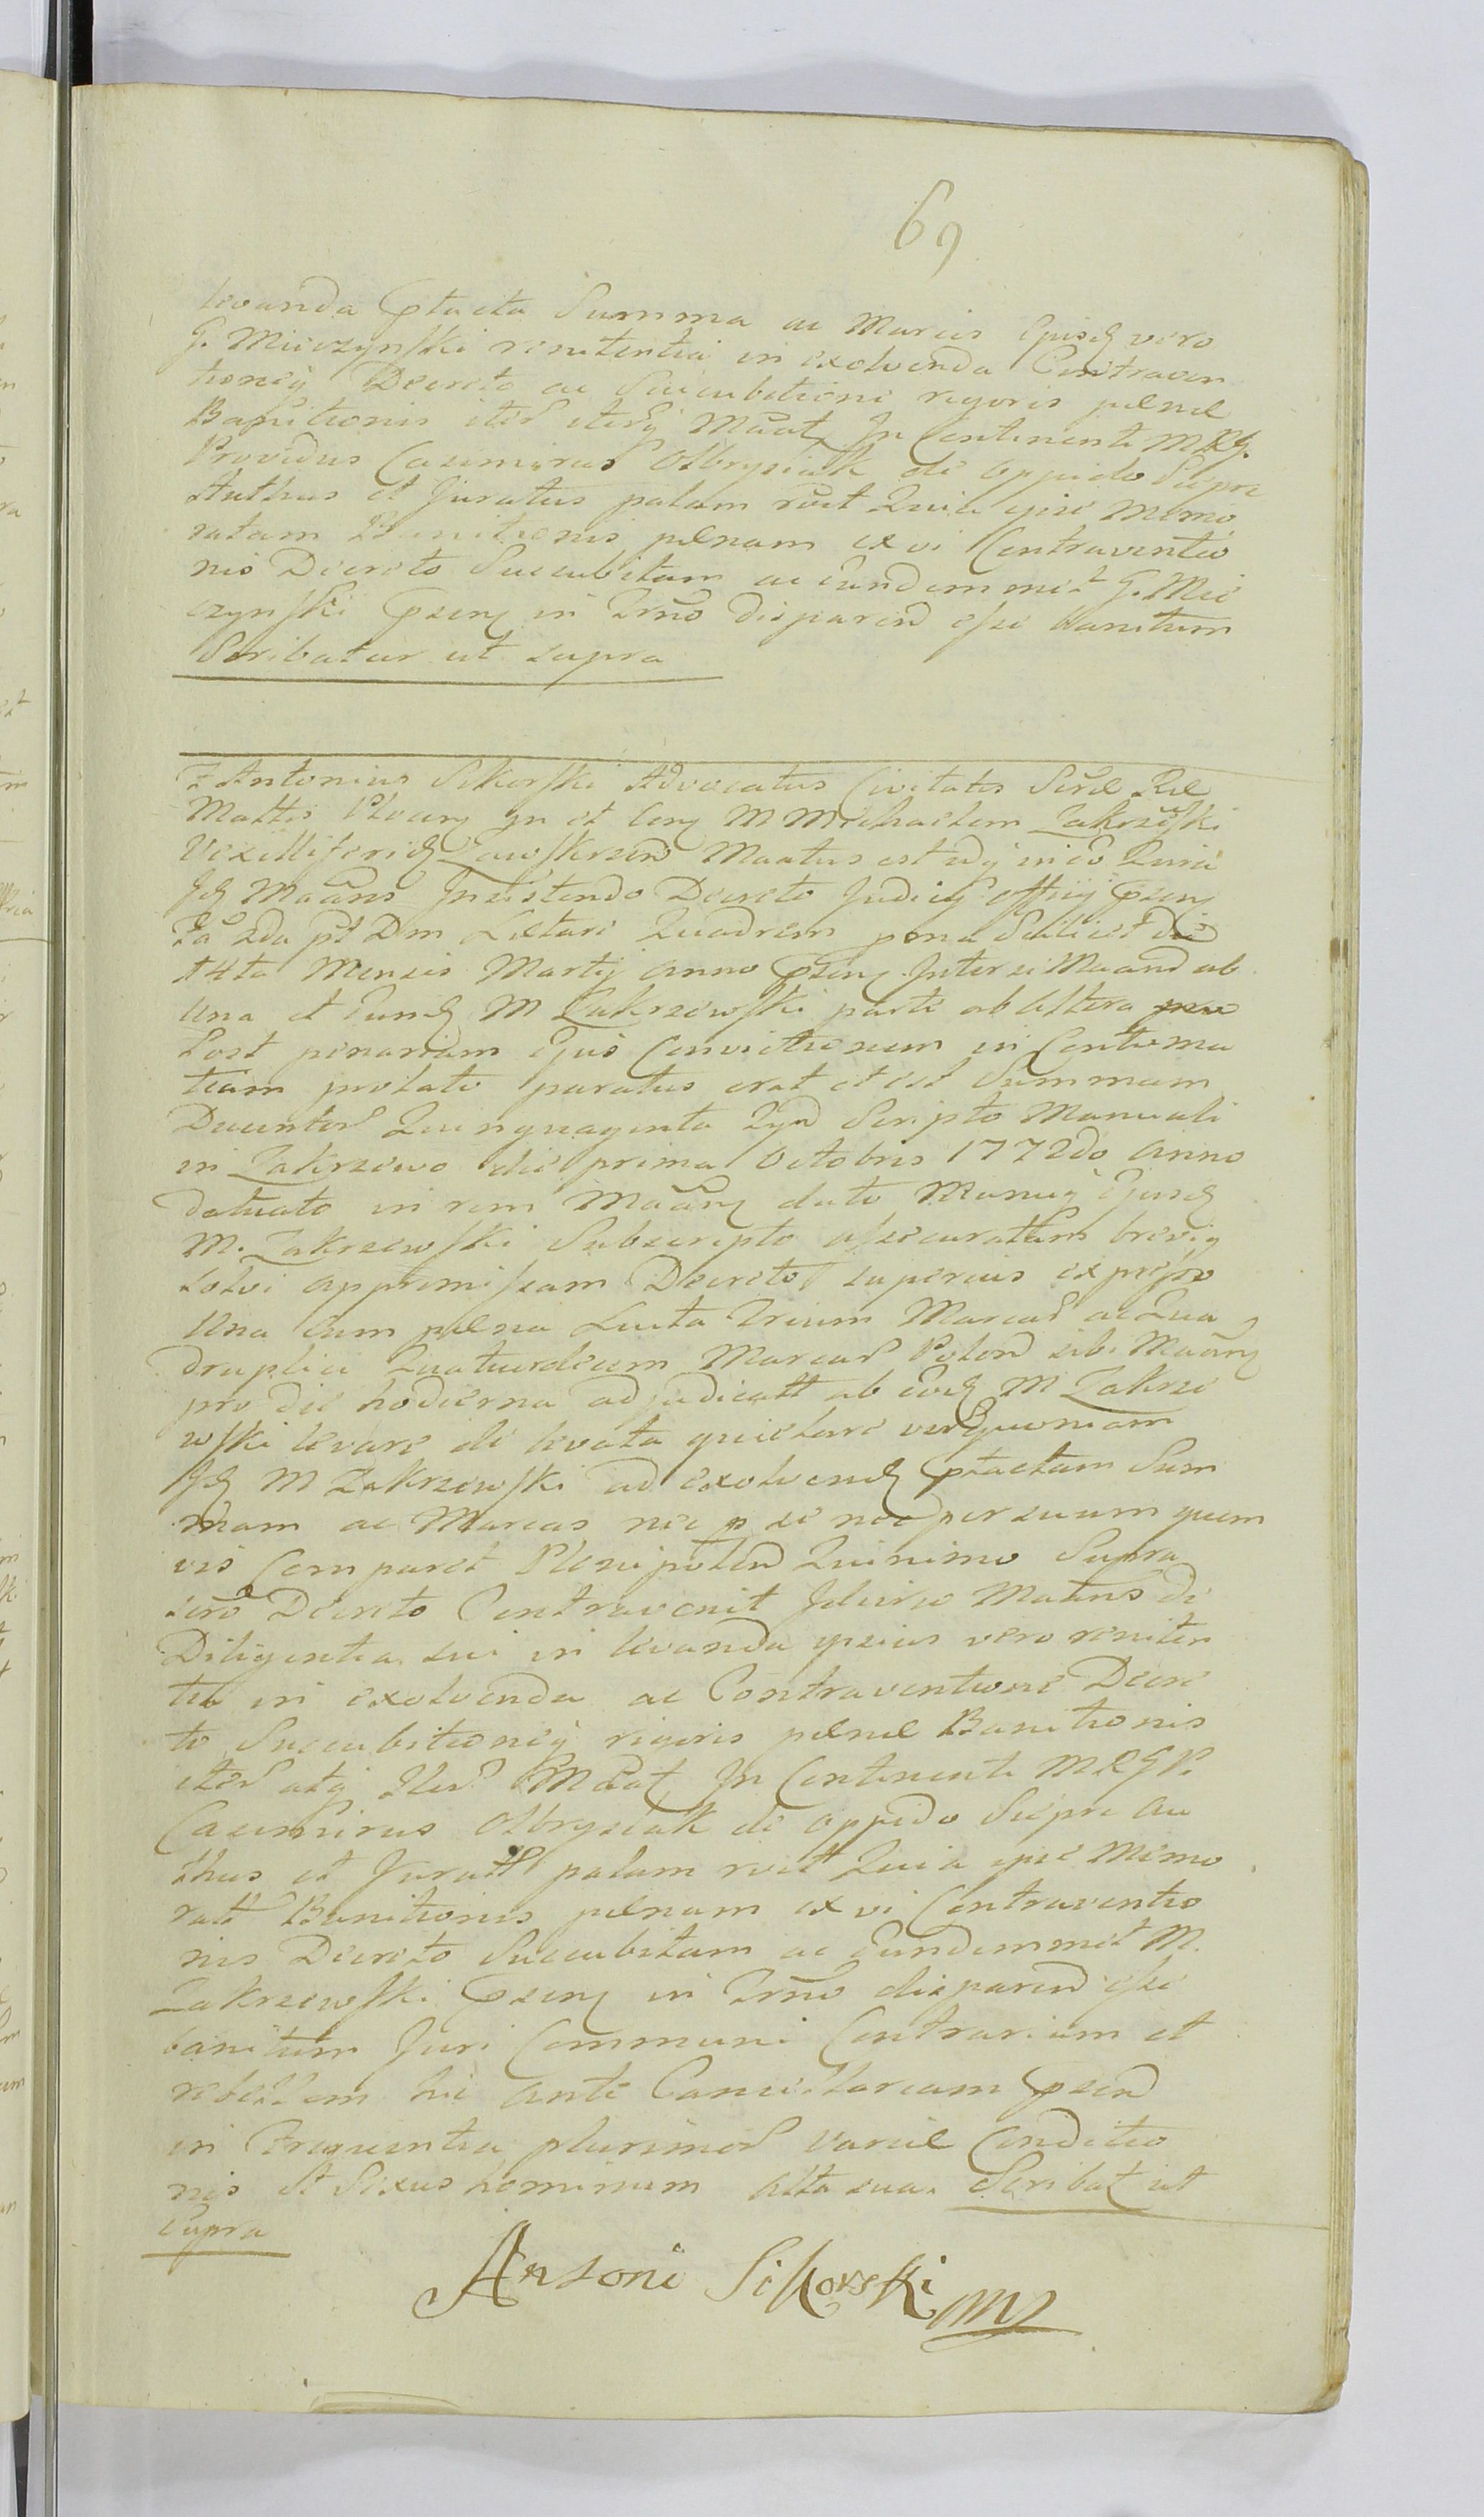 69
levanda ptacta Summa ac Marcis Ipisq vero
G. Mieczynski renitentia in exolvenda Contraven
tioneq Decreto ac Succubitioni rigoris penae
Banitionis iter iterq Maat In Continenti MRG.
Providus Casimirus Olbrysiak de oppido Siepre
Authus et Juratus palam rvit Quia ipse Memo
ratam Banitionis paenam ex vi Contraventio
nis Decreto Succubitam ac eundemmet G. Mie
czynski psenq in Trno disparend esse banitum
Scribatur ut supra
Antonius Sikorski Advocatus Civitatis Srae Rae
Mattis in et M Michaelem Zakrzewski
Vexilliferid Maatus est idq in eo Quia
Id Maans Insistendo Decreto Judicy offiy psenq
2da pt Dm Laetare Quadrem pona Scilicet die
14ta Mensis Marty anno psenq Inter se Maand ab
una et eund M Zakrzewski parte ab altera
Post penariam ejus Convictionem in Contuma
tiam prolato paratus erat et est Summam
Ducentor Quinquaginta Scripto Manuali
in Zakrzewo die prima Octobris 1772do anno
datuato in rem Maanq dato Manuq Ejusd
M. Zakrzewski Subscripto assecuratam breviq
solvi appromissam Decreto superius expresso
una cum paena Lucta Trium Marcar ac Qua
druplici Quatuordecim Marcar Polond sibi Maanq
pro die hodierna adjudicatt ab eod M Zakrze
wski levare de levata quietare verum quoniam
Id M Zakrzewski ad exolvend ptactam Sum
mam ac Marcas nec p se nec per suum quem
vis Comparet Plenipotend Quinimo Supra
scro Decreto Contravenit Ideirco Matus de
Diligentia sui in levanda ipsius vero reniten
tia in exolvenda ac Contraventione Decre
to Succubitioneq rigoris paenae Banitionis
iter atq Iter Maat In Continenti MRGP.
Casimirus Olbrysiak de oppido Siepre Au
thus et Juratt palam rvit Quia ipse Memo
ratt Banitionis paenam ex vi Contraventio
nis Decreto Succubitam ac eundemmet M.
Zakrzewski psenq in Trno disparend esse
banitum Juri Communi Contrarium et
rebellem hic ante Cancellariam psend
in Frequentia plurimor variae Conditio
nis et Sexus hominum alta sua. Scribat ut
Supra
Antoni Sikorski mp